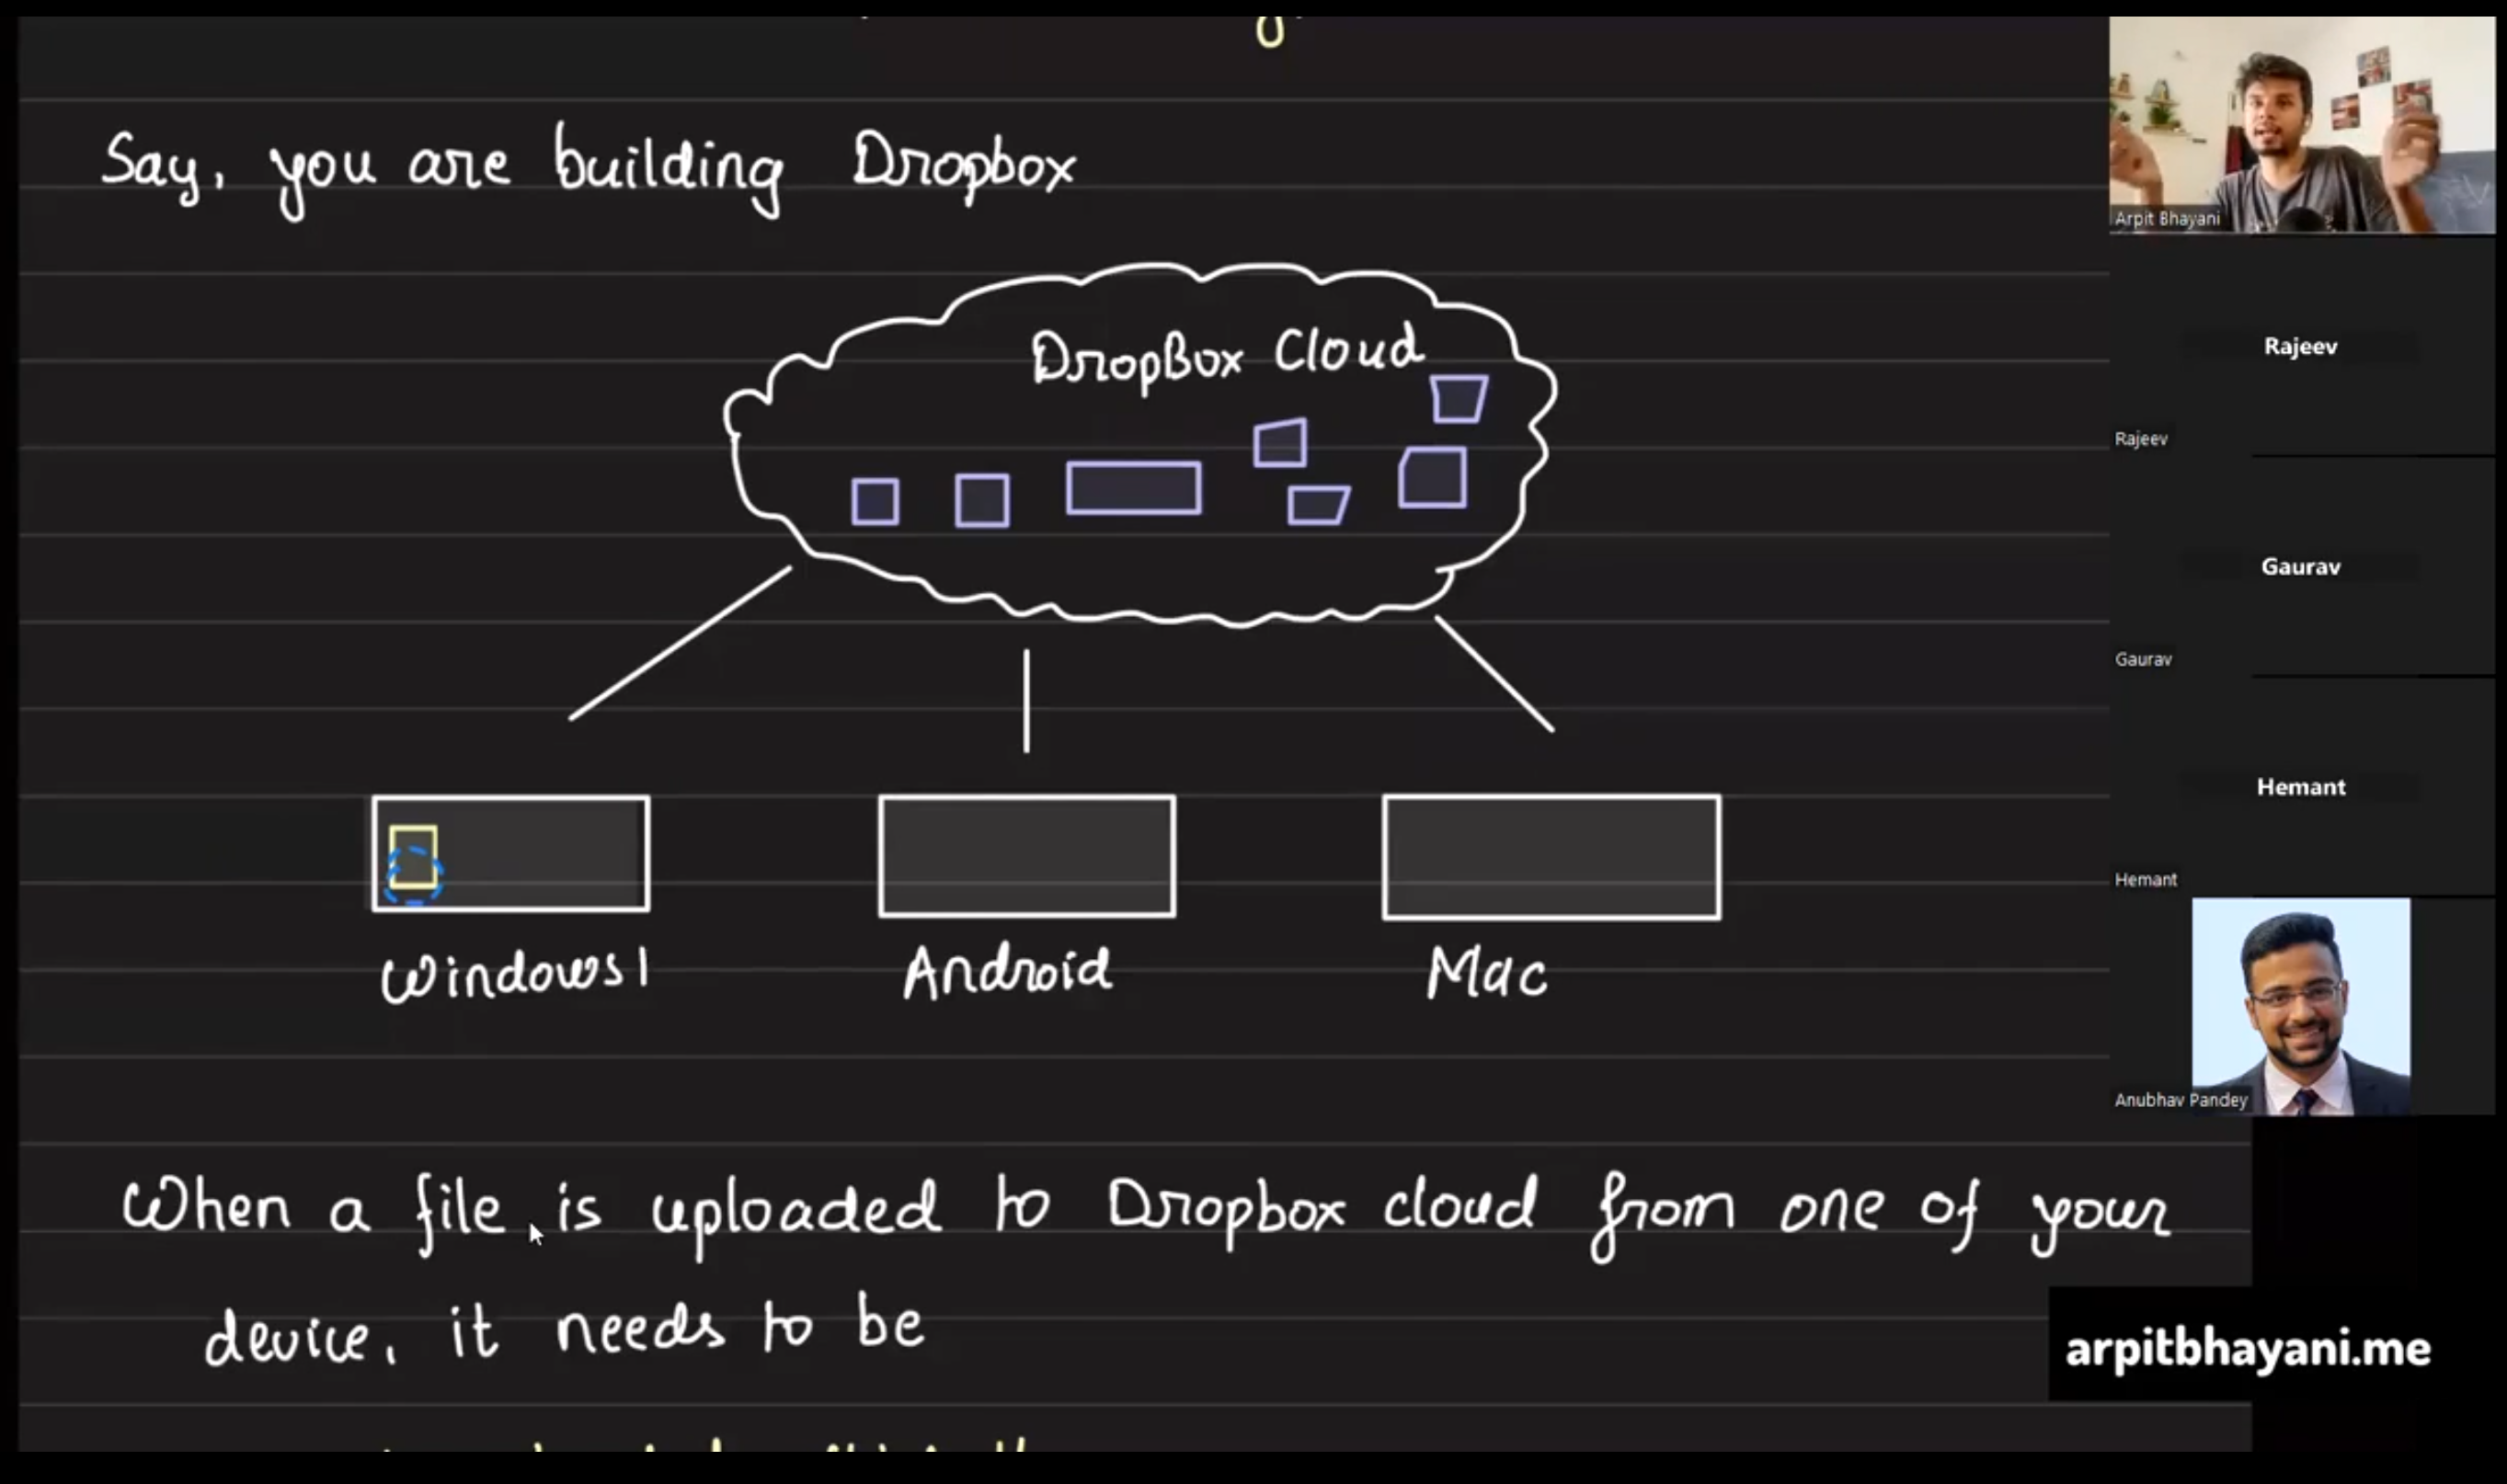 Say, you are building Dropbox
DropBox Cloud
Windows1
Android
Mac
When a file is uploaded to Dropbox cloud from one of your
device, it needs to be
Arpit Bhayani
Rajeev
Rajeev
Gaurav
Gaurav
Hemant
Hemant
Anubhav Pandey
arpitbhayani.me